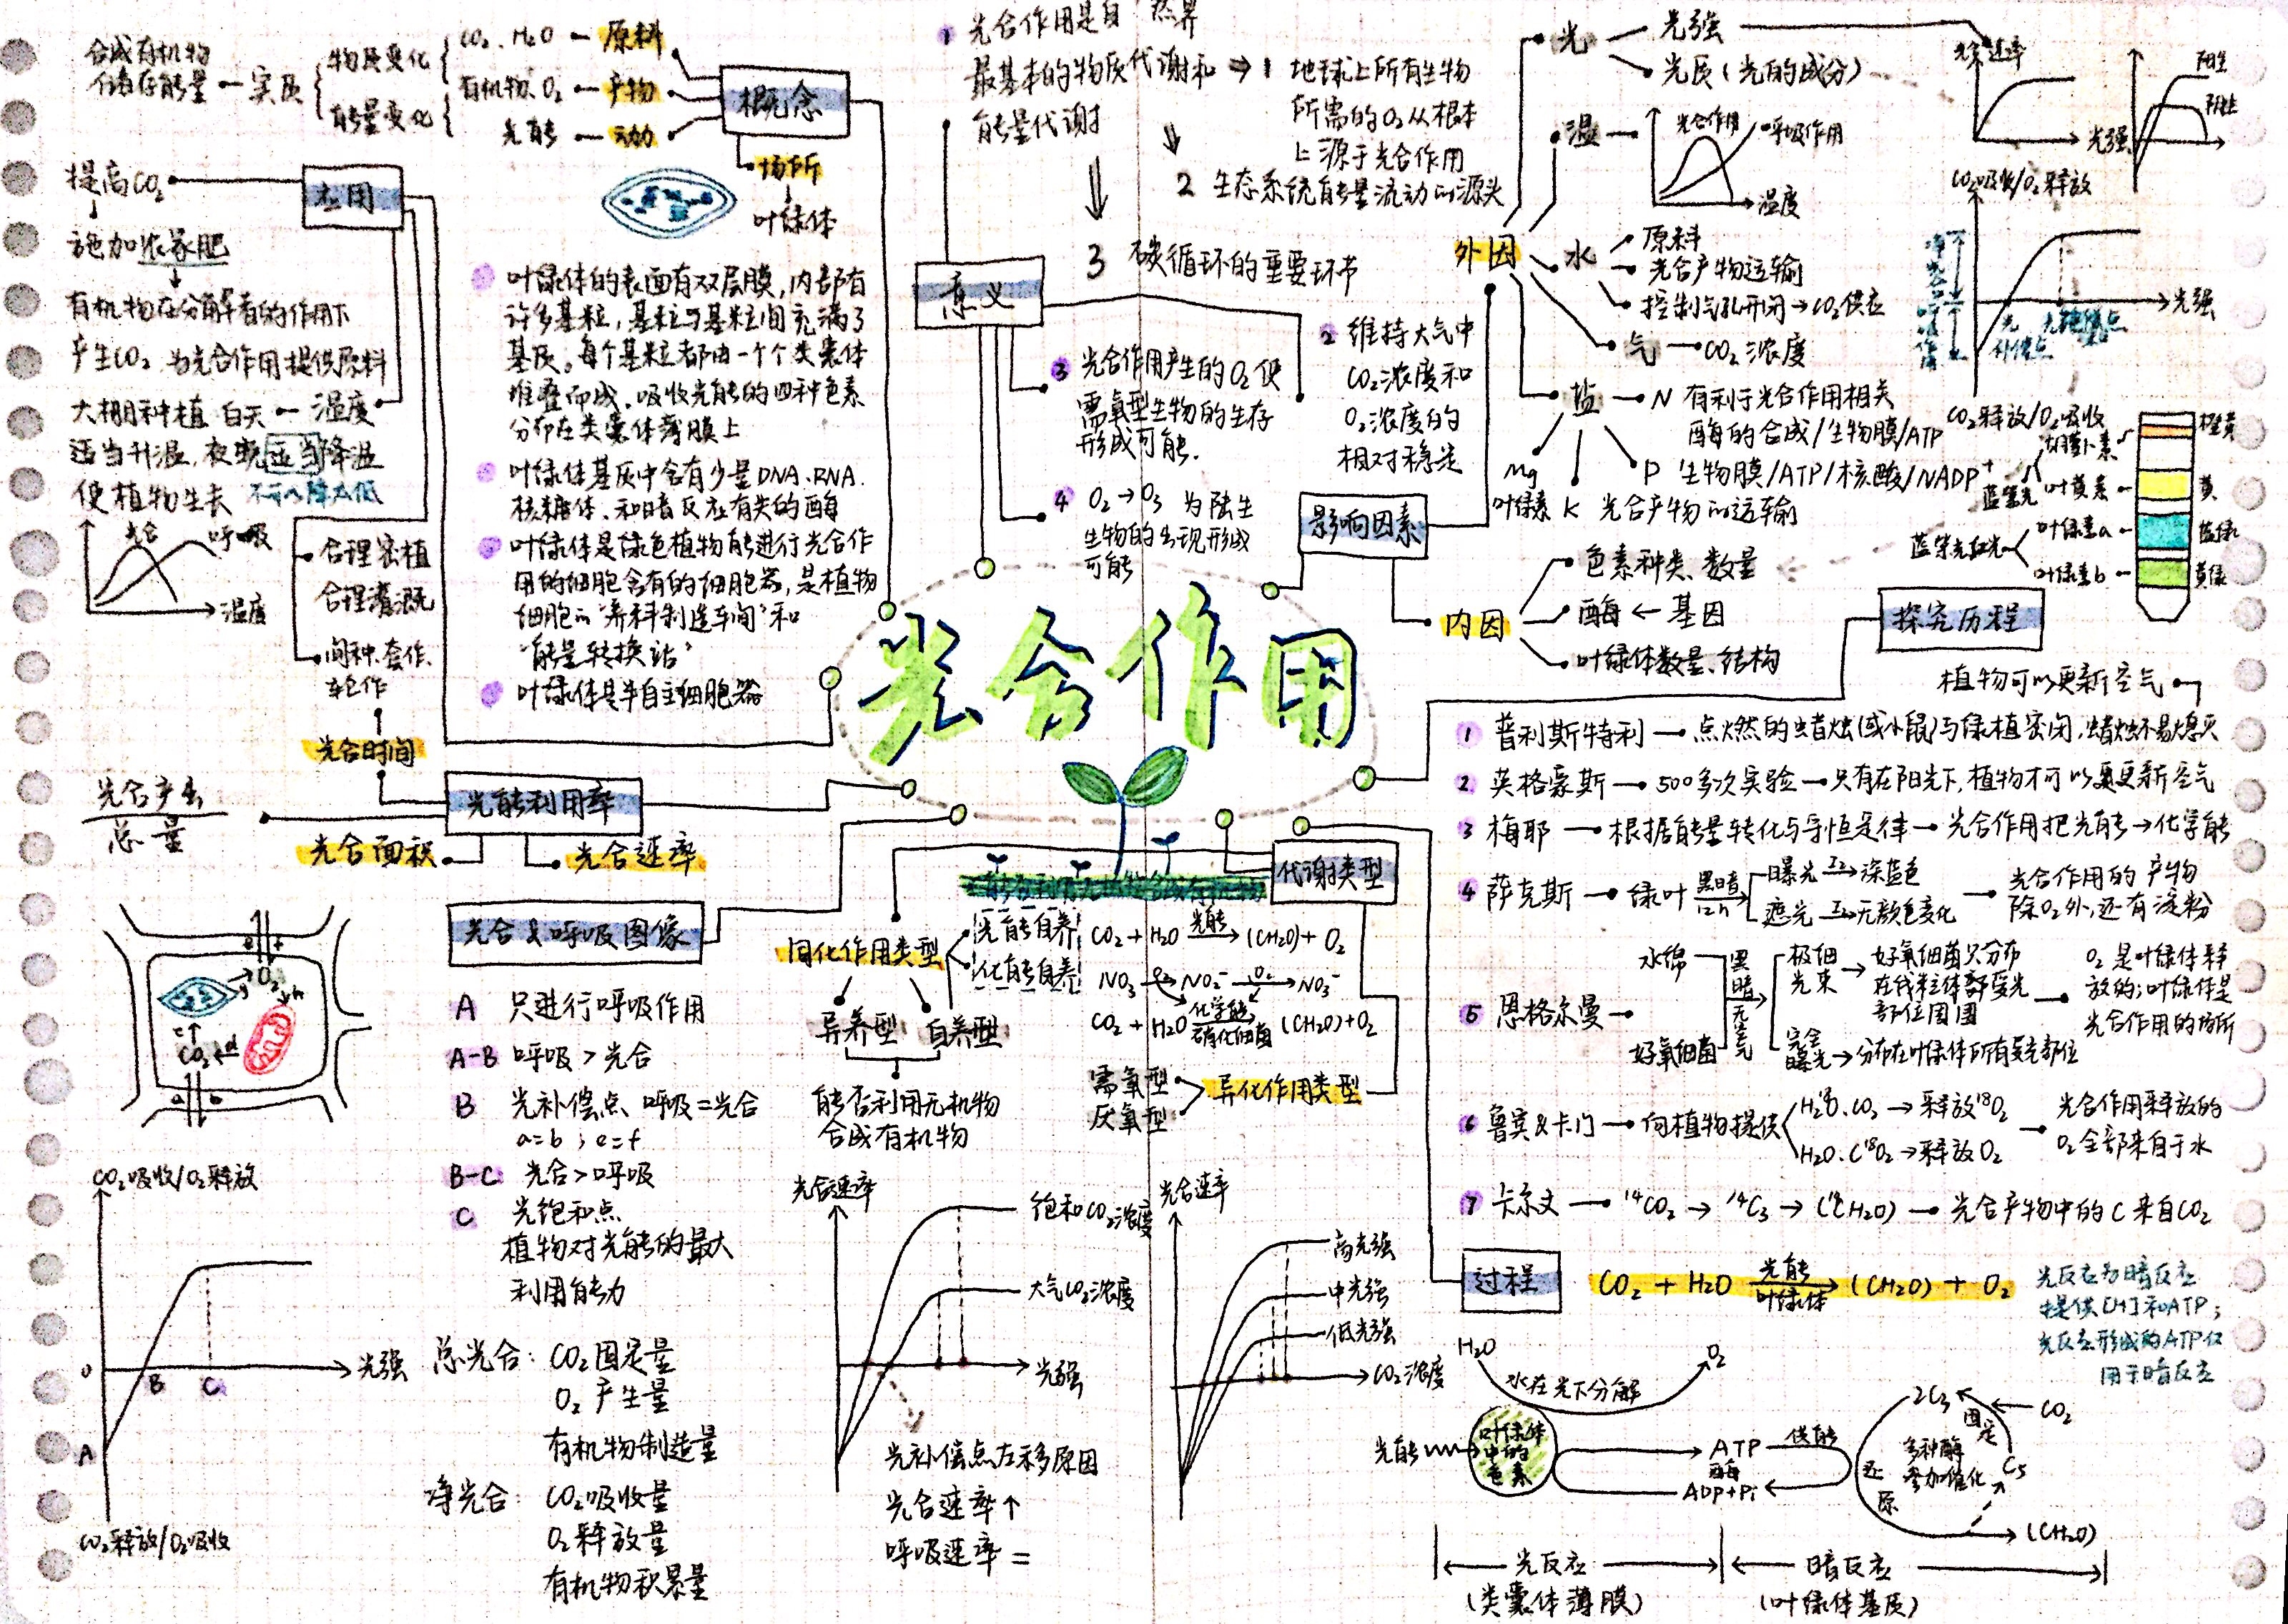 光合作用
概念
CO₂、H₂O — 原料
有机物、O₂ — 产物
光能 — 动力
物质变化
能量变化
实质
合成有机物
储存能量
场所
叶绿体
叶绿体的表面有双层膜,内部有
许多基粒,基粒与基粒间充满了
基质。每个基粒都由一个个类囊体
堆叠而成。吸收光能的四种色素
分布在类囊体薄膜上
叶绿体基质中含有少量DNA、RNA、
核糖体、和暗反应有关的酶
叶绿体是绿色植物能进行光合作
用的细胞含有的细胞器,是植物
细胞的“养料制造车间”和
“能量转换站”
叶绿体是半自主细胞器
应用
提高CO₂
施加农家肥
有机物在分解者的作用下
产生CO₂ 为光合作用提供原料
温度
大棚种植 白天
适当升温,夜晚适当降温
使植物生长 不可以降太低
光合
呼吸
温度
合理密植
合理灌溉
间种、套作、
轮作
光合时间
光能利用率
光合产出
总量
光合面积
光合速率
意义
1 光合作用是自然界
最基本的物质代谢和
能量代谢
⇒ 1 地球上所有生物
所需的O₂从根本
上源于光合作用
2 生态系统能量流动的源头
3 碳循环的重要环节
2 维持大气中
CO₂浓度和
O₂浓度的
相对稳定
3 光合作用产生的O₂使
需氧型生物的生存
形成可能.
4 O₂→O₃ 为陆生
生物的出现形成
可能
影响因素
外因
光
光强
光质(光的成分)
光合速率
光强
阳生
阴生
温
光合作用
呼吸作用
温度
水
原料
光合产物运输
控制气孔开闭→CO₂供应
气 — CO₂浓度
盐
N 有利于光合作用相关
酶的合成/生物膜/ATP
P 生物膜/ATP/核酸/NADP⁺
K 光合产物的运输
Mg
叶绿素
CO₂吸收/O₂释放
光强
光补偿点
光饱和点
CO₂释放/O₂吸收
胡萝卜素 橙黄
叶黄素 黄
蓝紫光
叶绿素a 蓝绿
叶绿素b 黄绿
蓝紫光红光
内因
色素种类、数量
酶 ← 基因
叶绿体数量、结构
探究历程
植物可以更新空气
1 普利斯特利 → 点燃的蜡烛(或小鼠)与绿植密闭,蜡烛不易熄灭
2 英格豪斯 → 500多次实验 → 只有在阳光下,植物才可以更新空气
3 梅耶 → 根据能量转化与守恒定律 → 光合作用把光能→化学能
4 萨克斯 → 绿叶 黑暗 12h
曝光 I₂→深蓝色
遮光 I₂→无颜色变化
光合作用的产物
除O₂外,还有淀粉
5 恩格尔曼
水绵
好氧细菌
黑暗无空气
极细光束 → 好氧细菌只分布
在我粒体部受光
部位周围
完全曝光 → 分布在叶绿体所有受光部位
O₂是叶绿体释
放的;叶绿体是
光合作用的场所
6 鲁宾&卡门 → 向植物提供
H₂¹⁸O、CO₂ → 释放¹⁸O₂
H₂O、C¹⁸O₂ → 释放O₂
光合作用释放的
O₂全部来自于水
7 卡尔文 → ¹⁴CO₂ → ¹⁴C₃ → (¹⁴CH₂O) → 光合产物中的C来自CO₂
过程
CO₂ + H₂O 光能 叶绿体 → (CH₂O) + O₂
光反应为暗反应
提供[H]和ATP;
光反应形成的ATP仅
用于暗反应
H₂O
O₂
水在光下分解
光能
叶绿体
中的
色素
ATP
酶
ADP+Pi
供能
2C₃
固定
CO₂
多种酶
参加催化
C₅
还原
(CH₂O)
光反应
(类囊体薄膜)
暗反应
(叶绿体基质)
代谢类型
能否利用无机物合成有机物
同化作用类型
光能自养 CO₂ + H₂O 光能→ (CH₂O) + O₂
化能自养
NO₃ → NO₂⁻ O₂→ NO₃⁻
CO₂ + H₂O 化学能 硝化细菌 (CH₂O)+O₂
异养型
自养型
能否利用无机物
合成有机物
需氧型
厌氧型
异化作用类型
光合&呼吸图像
A 只进行呼吸作用
A-B 呼吸>光合
B 光补偿点 呼吸=光合
a=b ; e=f
B-C: 光合>呼吸
C 光饱和点
植物对光能的最大
利用能力
O₂
CO₂
CO₂吸收/O₂释放
0
A
B
C
光强
CO₂释放/O₂吸收
总光合: CO₂固定量
O₂产生量
有机物制造量
净光合: CO₂吸收量
O₂释放量
有机物积累量
光合速率
饱和CO₂浓度
大气CO₂浓度
光强
光补偿点左移原因
光合速率↑
呼吸速率 =
光合速率
高光强
中光强
低光强
CO₂浓度